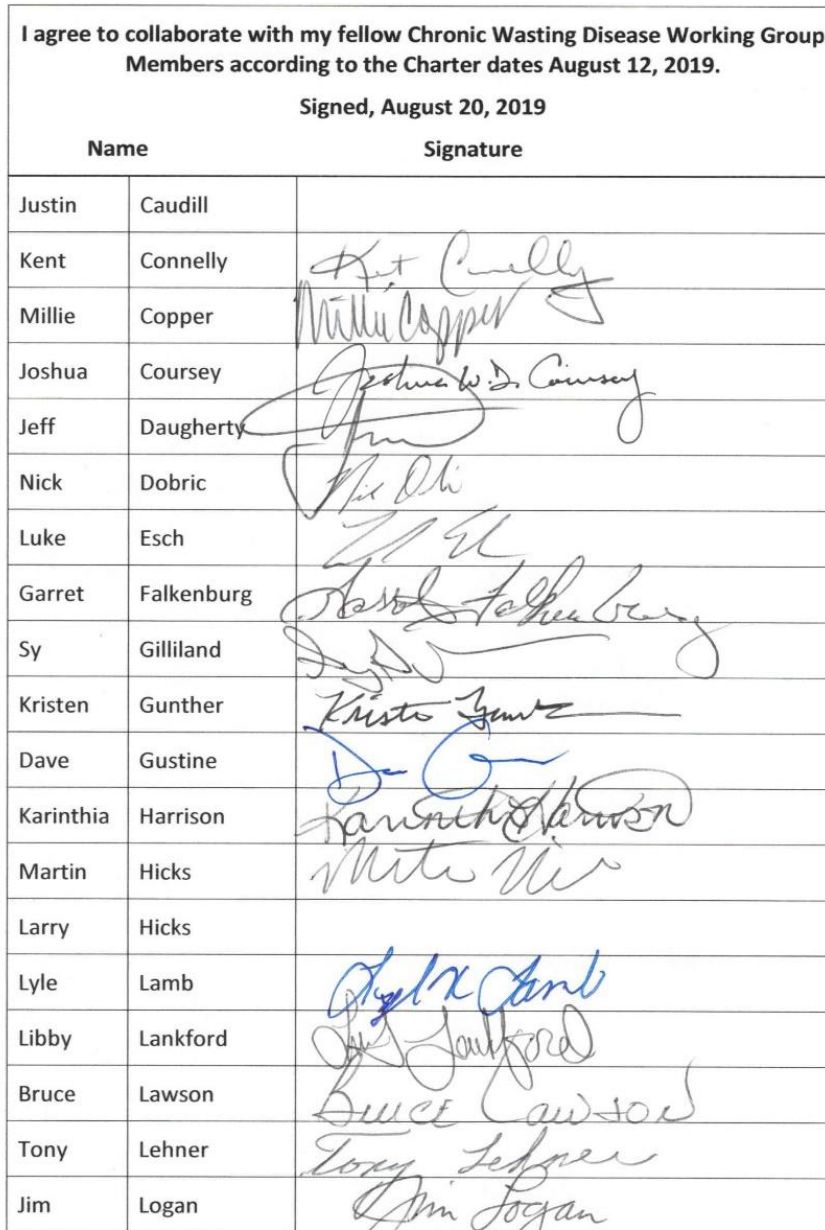 I agree to collaborate with my fellow Chronic Wasting Disease Working Group
Members according to the Charter dates August 12, 2019.
Signed, August 20, 2019
Name Signature
Justin Caudill
Kent Connelly Kent Connelly
Millie Copper Millie Copper
Joshua Coursey Joshua W.D. Coursey
Jeff Daugherty
Nick Dobric
Luke Esch
Garret Falkenburg Falkenburg
Sy Gilliland
Kristen Gunther
Dave Gustine
Karinthia Harrison Karinthia Harrison
Martin Hicks
Larry Hicks
Lyle Lamb Lamb
Libby Lankford Lankford
Bruce Lawson Bruce Lawson
Tony Lehner Tony Lehner
Jim Logan Jim Logan